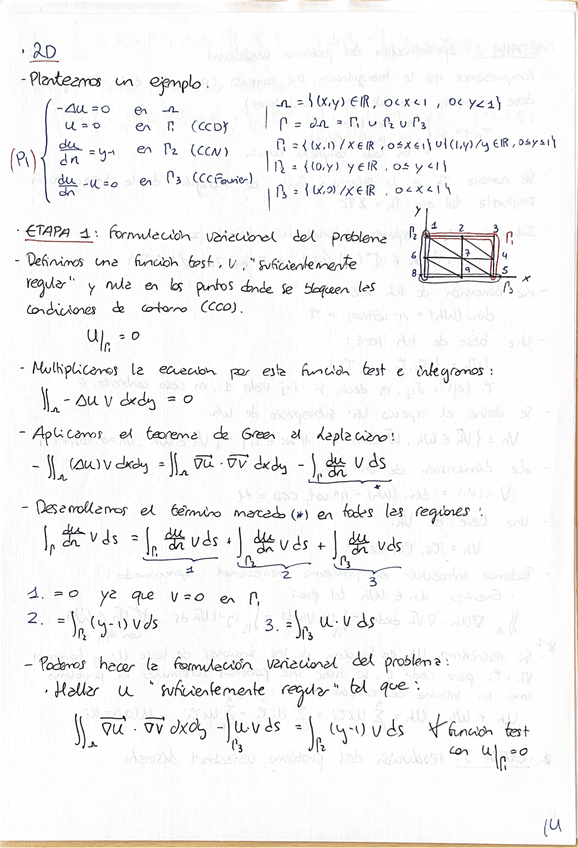 · 2D
- Planteamos un ejemplo:
(P₁) { -Δu = 0 en Ω | Ω = {(x,y) ∈ ℝ, 0<x<1, 0<y<1}
u = 0 en Γ₁ (CCD) | Γ = ∂Ω = Γ₁ ∪ Γ₂ ∪ Γ₃
du/dn = y-1 en Γ₂ (CCN) | Γ₁ = {(x,1) / x ∈ ℝ, 0≤x≤1} ∪ {(1,y) / y ∈ ℝ, 0≤y≤1}
| Γ₂ = {(0,y) y ∈ ℝ, 0≤y<1}
du/dn - u = 0 en Γ₃ (CCFourier) | Γ₃ = {(x,0) / x ∈ ℝ, 0<x<1}
· ETAPA 1: Formulación variacional del problema
y
Γ₂ 1 2 3 Γ₁
6 7 4
8 9 5 x
Γ₃
- Definimos una función test, v, "suficientemente
regular" y nula en los puntos donde se bloqueen las
condiciones de contorno (CCD).
U/Γ₁ = 0
- Multiplicamos la ecuacion por esta función test e integramos:
∬_Ω -Δu v dxdy = 0
- Aplicamos el teorema de Green al Laplaciano:
-∬_Ω (Δu) v dxdy = ∬_Ω ∇u · ∇v dxdy - ∫_Γ du/dn v ds
*
- Desarrollamos el término marcado (*) en todas las regiones:
∫_Γ du/dn v ds = ∫_Γ₁ du/dn v ds + ∫_Γ₂ du/dn v ds + ∫_Γ₃ du/dn v ds
1 2 3
1. = 0 ya que v = 0 en Γ₁
2. = ∫_Γ₂ (y-1) v ds 3. = ∫_Γ₃ u · v ds
- Podemos hacer la formulación variacional del problema:
· Hallar u "suficientemente regular" tal que:
∬_Ω ∇u · ∇v dxdy - ∫_Γ₃ u · v ds = ∫_Γ₂ (y-1) v ds ∀ función test
con u/Γ₁ = 0
14